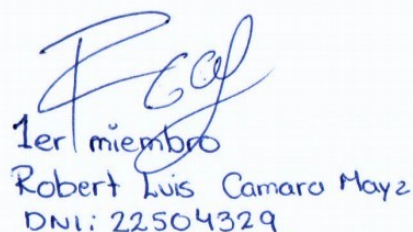 1er miembro
Robert Luis Camara Mayz
DNI: 22504329